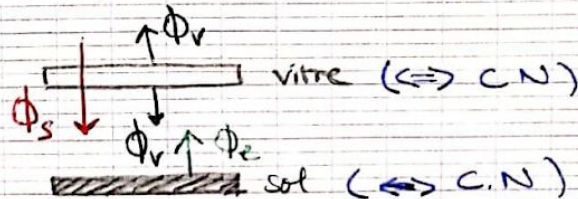 ϕv
vitre (<=> C N)
ϕs
ϕv ϕe
sol (<=> C.N)